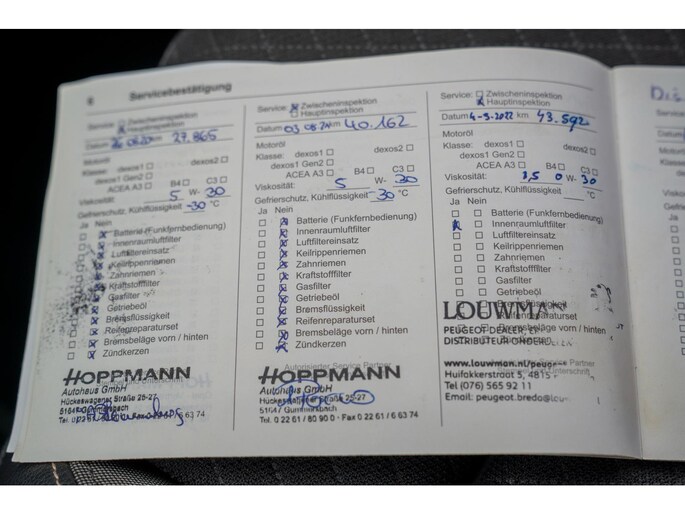 8 Servicebestätigung
Service: Zwischeninspektion
Hauptinspektion
Datum 27.865
Motoröl
Klasse: dexos1 dexos2
dexos1 Gen2
ACEA A3 B4 C3
Viskosität: 5 W- 30
Gefrierschutz, Kühlflüssigkeit -30 °C
Ja Nein
Batterie (Funkfernbedienung)
Innenraumluftfilter
Luftfiltereinsatz
Keilrippenriemen
Zahnriemen
Kraftstofffilter
Gasfilter
Getriebeöl
Bremsflüssigkeit
Reifenreparaturset
Bremsbeläge vorn / hinten
Zündkerzen
HOPPMANN
Autohaus GmbH
Hückeswagener Straße 25-27
Gummersbach
Service: Zwischeninspektion
Hauptinspektion
Datum km 40.162
Motoröl
Klasse: dexos1 dexos2
dexos1 Gen2
ACEA A3 B4 C3
Viskosität: 5 W- 30
Gefrierschutz, Kühlflüssigkeit -30 °C
Ja Nein
Batterie (Funkfernbedienung)
Innenraumluftfilter
Luftfiltereinsatz
Keilrippenriemen
Zahnriemen
Kraftstofffilter
Gasfilter
Getriebeöl
Bremsflüssigkeit
Reifenreparaturset
Bremsbeläge vorn / hinten
Zündkerzen
Autorisierter Service Partner
HOPPMANN
Autohaus GmbH
Hückeswagener Straße 25-27
51647 Gummersbach
Tel. 0 22 61 / 80 90 0 · Fax 0 22 61 / 6 63 74
Service: Zwischeninspektion
Hauptinspektion
Datum 4-5-2022 km 43.592
Motoröl
Klasse: dexos1 dexos2
dexos1 Gen2
ACEA A3 B4 C3
Viskosität: 0 W- 30
Gefrierschutz, Kühlflüssigkeit °C
Ja Nein
Batterie (Funkfernbedienung)
Innenraumluftfilter
Luftfiltereinsatz
Keilrippenriemen
Zahnriemen
Kraftstofffilter
Gasfilter
Getriebeöl
Bremsflüssigkeit
Reifenreparaturset
Bremsbeläge vorn / hinten
LOUWMAN
PEUGEOT DEALER, EN
Service Partner
www.louwman.nl/peuge
Huifakkerstraat 5, 4815
Tel (076) 565 92 11
Email: peugeot.breda@lou